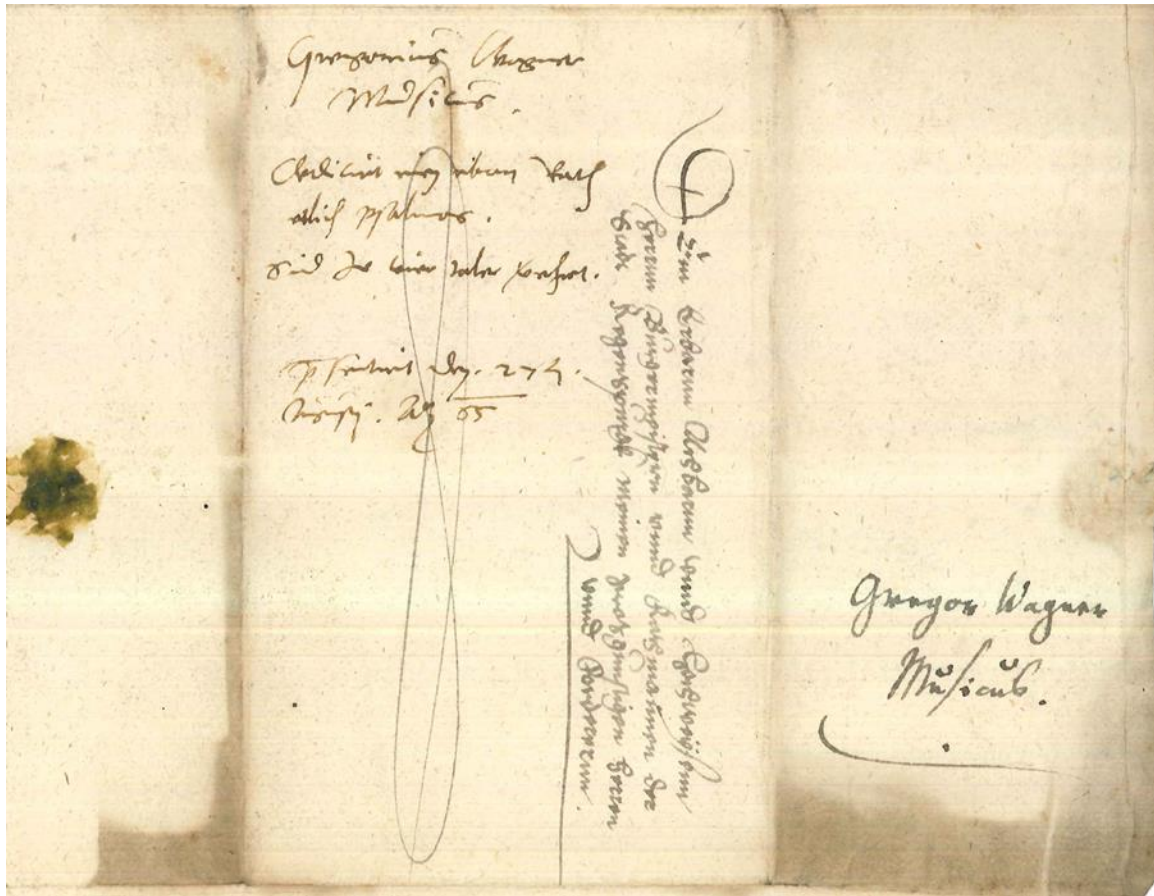 Gregorius Wagner
Musicus.
Dedicirt einem erbarn Rath
etlich psalmos.
Sind Im vier taler verehrt.
presentirt den. 27t.
Aō 65
Den Erbarnn Achbarnn vnnd Hochweisenn
Herrnn Burgermeistern vnnd Rathmannen der
Stadt Regenspurgk meinen grosgunstigen Herren
vnnd Forderernn.
Gregor Wagner
Musicus.